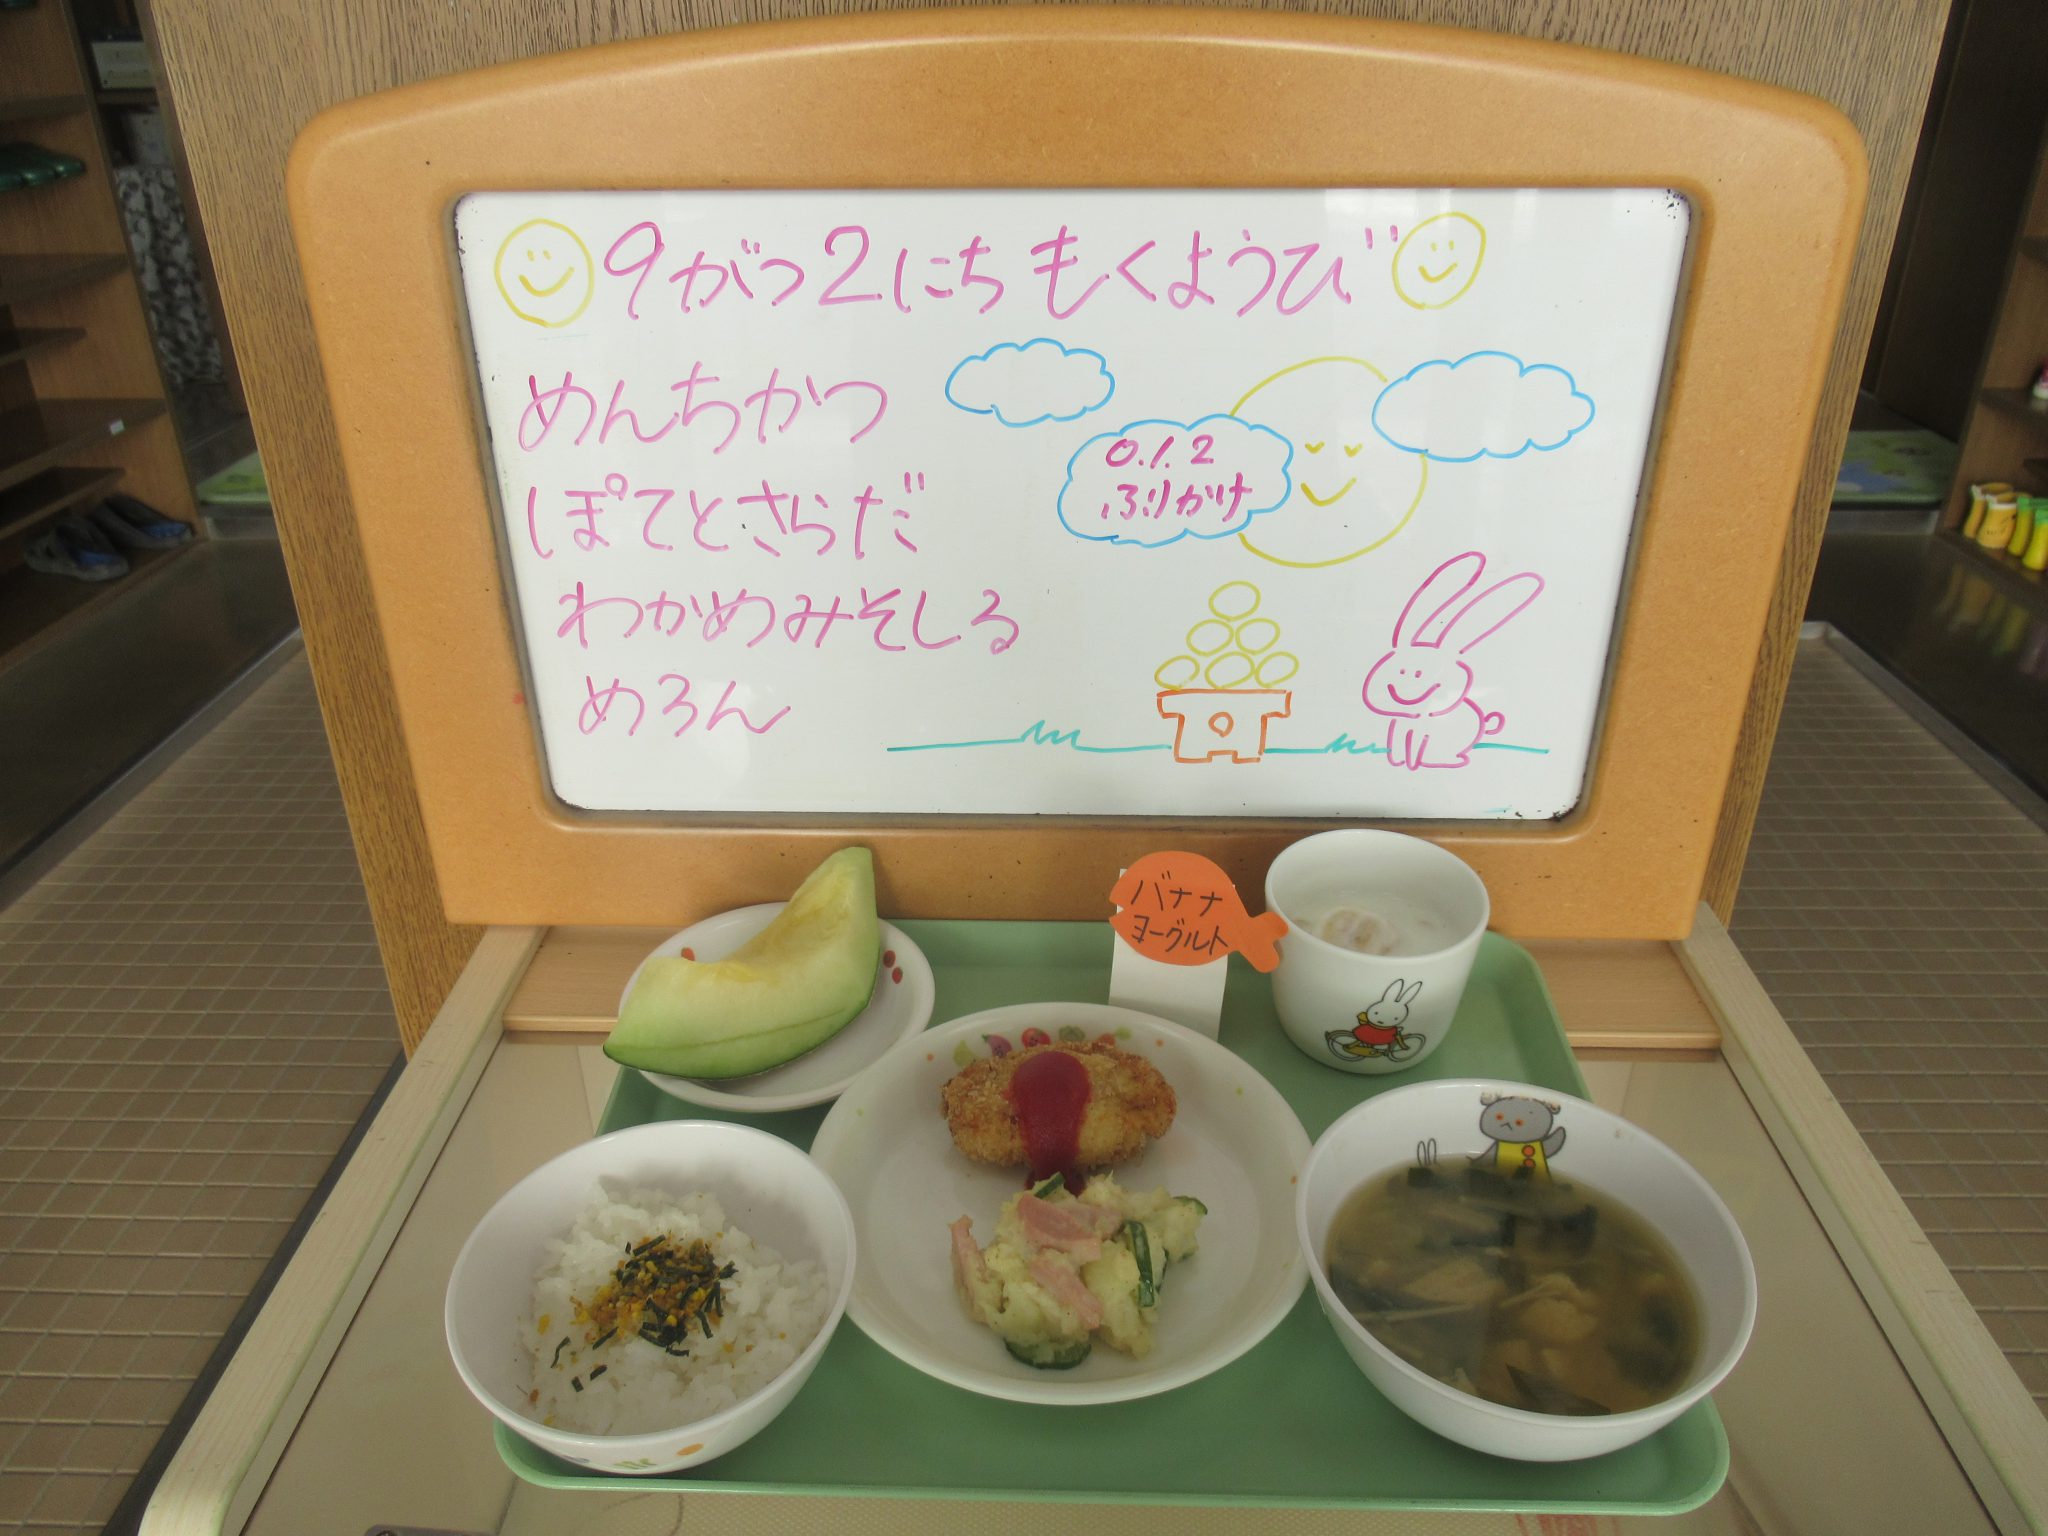 9がつ2にち もくようび
めんちかつ
ぽてとさらだ
わかめみそしる
めろん
0.1.2
ふりかけ
バナナ
ヨーグルト